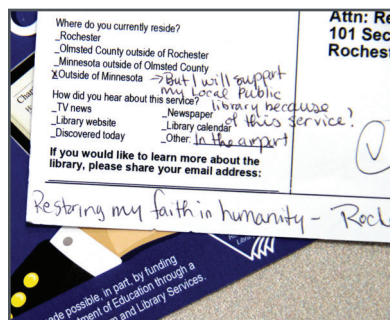 Where do you currently reside?
_Rochester
_Olmsted County outside of Rochester
_Minnesota outside of Olmsted County
X Outside of Minnesota → But I will support
my Local Public
library because
of this service?
How did you hear about this service?
_TV news _Newspaper
_Library website _Library calendar
_Discovered today _Other: In the airport
If you would like to learn more about the
library, please share your email address:
Attn: Re
101 Sec
Rochest
Restoring my faith in humanity - Rock
Char
Libr
ade possible, in part, by funding
tment of Education through a
m and Library Services.